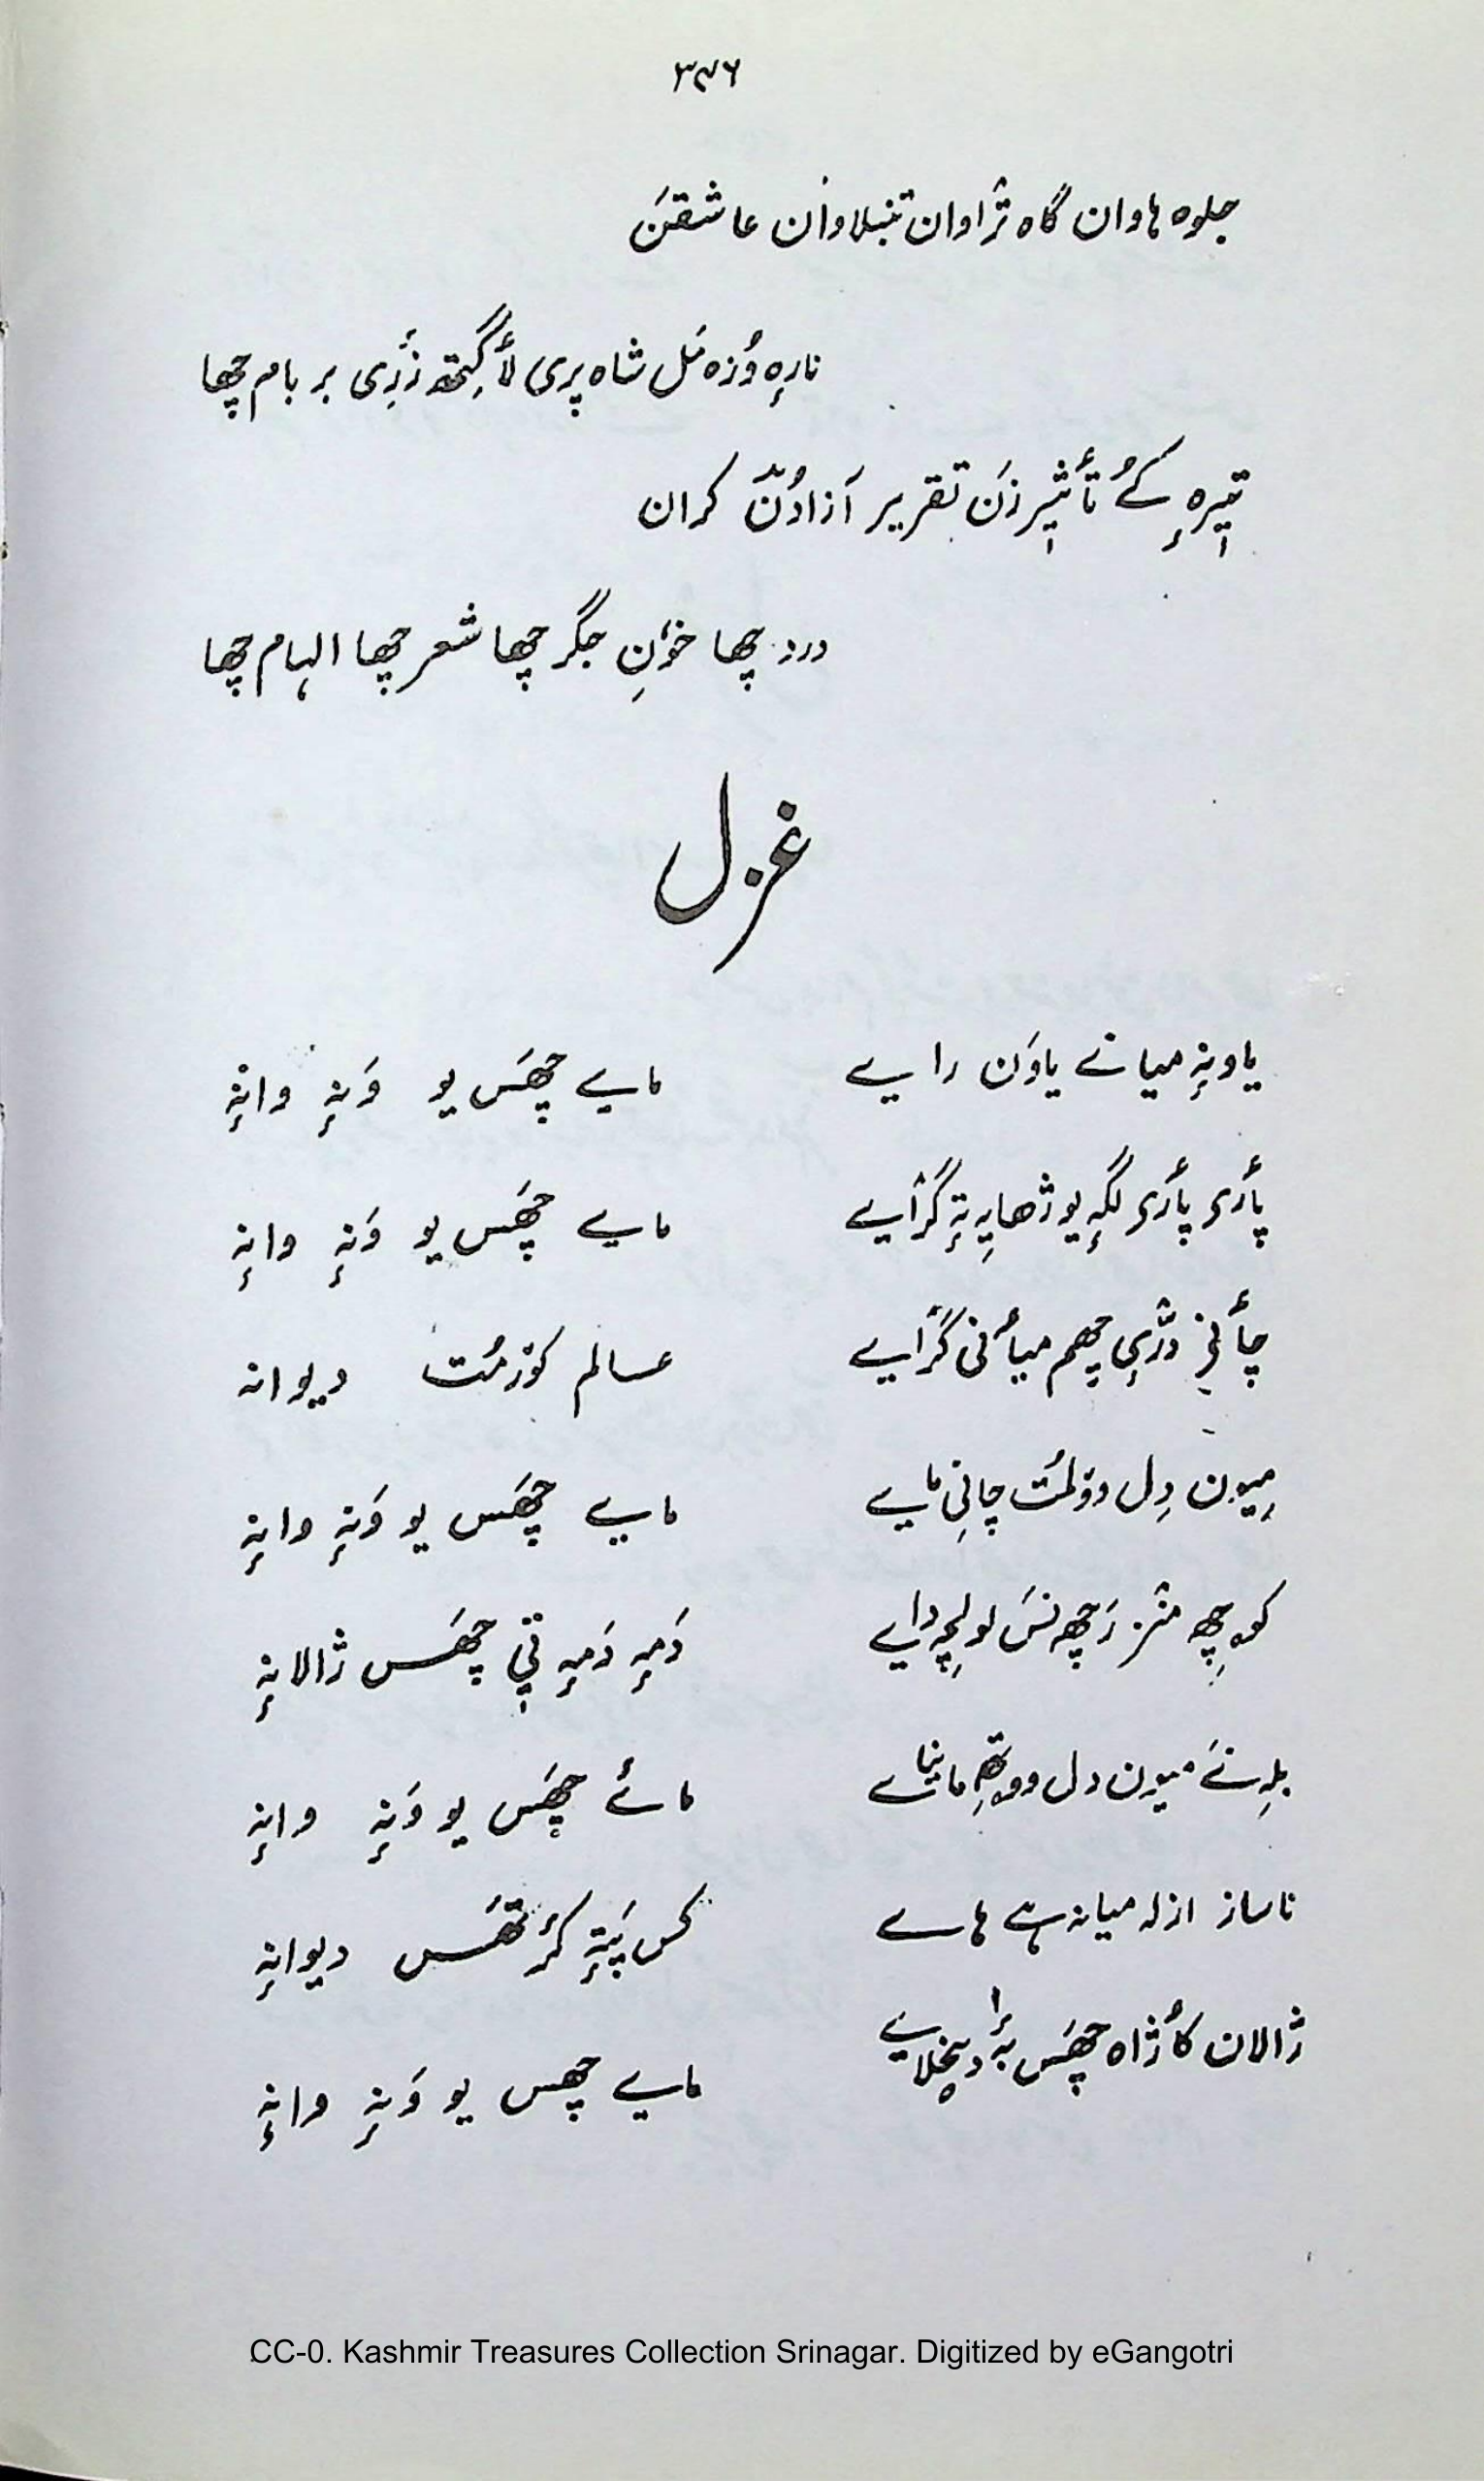 ۳۴۶
جلوہ ہاوان گاہ ترٛاوان تنبلاوان عاشقَن
نارٕہ وُزہ مَل شاہ پری لٲگِتھ زٔری بر بام چھا
تیٖرٕہ کےُ تٲثیٖر زَن تقریر آزادُن کران
درد چھا خوٗنِ جگر چھا شعر چھا الہام چھا
غزل
یاونہٕ میانے یاوَن رایے
مایے چھَس یو وَنہٕ وانہٕ
پٲری پٲری لگہٕ یو ژھایہِ تہٕ گرٛایے
مایے چھَس یو وَنہٕ وانہٕ
چٲنی درٛیِ چھم میٲنی گرٛایے
عالم کوٚرمُت دیوانہ
میٖون دِل ووٚلمُت چانِی مایے
مایے چھَس یو وَنہٕ وانہٕ
کوچھِ منٛز رَچھنَس لولچہِ دایے
دَمہٕ دَمہٕ تیٖ چھَس ژالانہٕ
بلہِ نَے میون دل ووتھِ مانیاے
مائے چھَس یو وَنہٕ وانہٕ
ناساز ازلہ میانہ ہے ہاے
کس پَتہٕ کٔرتھَس دیوانہٕ
ژالان کٲژاہ چھَس بہٕ دیٚخلایے
مایے چھس یو وَنہٕ وانہٕ
CC-0. Kashmir Treasures Collection Srinagar. Digitized by eGangotri